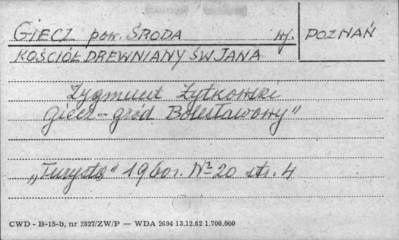 GIECZ pow. ŚRODA wj. POZNAŃ
KOŚCIÓŁ DREWNIANY ŚW JANA
Zygmunt Żytkowski
Giecz - gród Bolesławowy"
„Turysta" 1960r. № 20 str. 4
CWD - B-15-b, nr 2827/ZW/P — WDA 2694 13.12.62 1.700.000